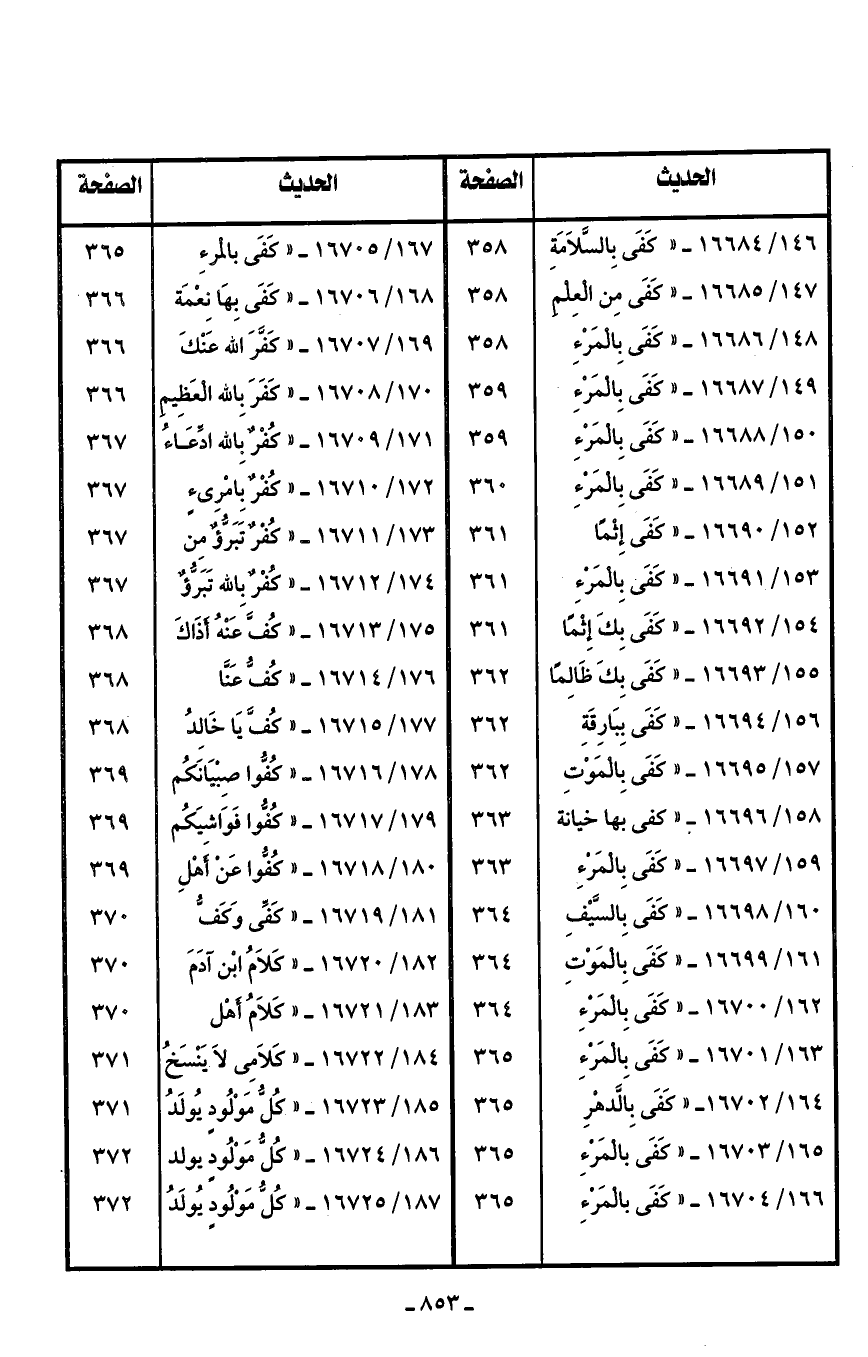 الحديث الصفحة الحديث الصفحة
١٤٦/ ١٦٦٨٤ ـ « كَفَى بِالسَّلاَمَةِ ٣٥٨ ١٦٧/ ١٦٧٠٥ ـ « كَفَى بالمرءِ ٣٦٥
١٤٧/ ١٦٦٨٥ ـ « كَفَى مِن الْعِلْمِ ٣٥٨ ١٦٨/ ١٦٧٠٦ ـ « كَفَى بِهَا نِعْمَة ٣٦٦
١٤٨/ ١٦٦٨٦ ـ « كَفَى بِالْمَرْءِ ٣٥٨ ١٦٩/ ١٦٧٠٧ ـ « كَفَّرَ الله عَنْكَ ٣٦٦
١٤٩/ ١٦٦٨٧ ـ « كَفَى بِالْمَرْءِ ٣٥٩ ١٧٠/ ١٦٧٠٨ ـ « كَفَرَ بِالله الْعَظِيمِ ٣٦٦
١٥٠/ ١٦٦٨٨ ـ « كَفَى بِالْمَرْءِ ٣٥٩ ١٧١/ ١٦٧٠٩ ـ « كُفْرٌ بِالله ادِّعَاءُ ٣٦٧
١٥١/ ١٦٦٨٩ ـ « كَفَى بِالْمَرْءِ ٣٦٠ ١٧٢/ ١٦٧١٠ ـ « كُفْرٌ بِامْرِىءٍ ٣٦٧
١٥٢/ ١٦٦٩٠ ـ « كَفَى إِثْمًا ٣٦١ ١٧٣/ ١٦٧١١ ـ « كُفْرٌ تَبَرُّؤٌ مِن ٣٦٧
١٥٣/ ١٦٦٩١ ـ « كَفَى بِالْمَرْءِ ٣٦١ ١٧٤/ ١٦٧١٢ ـ « كُفْرٌ بِالله تَبَرُّؤٌ ٣٦٧
١٥٤/ ١٦٦٩٢ ـ « كَفَى بِكَ إِثْمًا ٣٦١ ١٧٥/ ١٦٧١٣ ـ « كُفَّ عَنْهُ أَذَاكَ ٣٦٨
١٥٥/ ١٦٦٩٣ ـ « كَفَى بِكَ ظَالِمًا ٣٦٢ ١٧٦/ ١٦٧١٤ ـ « كُفُّ عَنَّا ٣٦٨
١٥٦/ ١٦٦٩٤ ـ « كَفَى بِبَارِقَةِ ٣٦٢ ١٧٧/ ١٦٧١٥ ـ « كُفَّ يَا خَالِدُ ٣٦٨
١٥٧/ ١٦٦٩٥ ـ « كَفَى بِالْمَوْتِ ٣٦٢ ١٧٨/ ١٦٧١٦ ـ « كُفُّوا صِبْيَانَكُم ٣٦٩
١٥٨/ ١٦٦٩٦ ـ « كفى بها خيانة ٣٦٣ ١٧٩/ ١٦٧١٧ ـ « كُفُّوا فَوَاشِيَكُم ٣٦٩
١٥٩/ ١٦٦٩٧ ـ « كَفَى بِالْمَرْءِ ٣٦٣ ١٨٠/ ١٦٧١٨ ـ « كُفُّوا عَنْ أَهْلِ ٣٦٩
١٦٠/ ١٦٦٩٨ ـ « كَفَى بِالسَّيْفِ ٣٦٤ ١٨١/ ١٦٧١٩ ـ « كَفِّى وَكَفُّ ٣٧٠
١٦١/ ١٦٦٩٩ ـ « كَفَى بِالْمَوْتِ ٣٦٤ ١٨٢/ ١٦٧٢٠ ـ « كَلاَمُ ابْن آدَمَ ٣٧٠
١٦٢/ ١٦٧٠٠ ـ « كَفَى بِالْمَرْءِ ٣٦٤ ١٨٣/ ١٦٧٢١ ـ « كَلاَمُ أَهْل ٣٧٠
١٦٣/ ١٦٧٠١ ـ « كَفَى بِالْمَرْءِ ٣٦٥ ١٨٤/ ١٦٧٢٢ ـ « كَلاَمِى لاَ يَنْسَخُ ٣٧١
١٦٤/ ١٦٧٠٢ـ « كَفَى بِالَّدهْرِ ٣٦٥ ١٨٥/ ١٦٧٢٣ ـ « كُلُّ مَوْلُودٍ يُولَدُ ٣٧١
١٦٥/ ١٦٧٠٣ ـ « كَفَى بِالْمَرْءِ ٣٦٥ ١٨٦/ ١٦٧٢٤ ـ « كُلُّ مَوْلُودٍ يولد ٣٧٢
١٦٦/ ١٦٧٠٤ ـ « كَفَى بِالْمَرْءِ ٣٦٥ ١٨٧/ ١٦٧٢٥ ـ « كُلُّ مَوْلُودٍ يُولَدُ ٣٧٢
ـ ٨٥٣ ـ